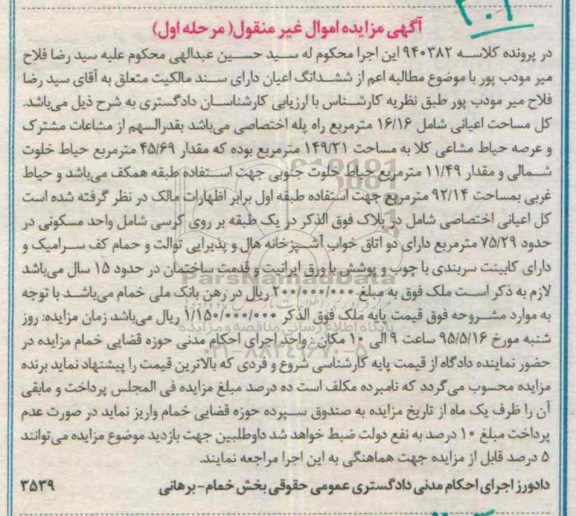 ۳۰۲
آگهی مزایده اموال غیر منقول( مرحله اول)
در پرونده کلاسه ۹۴۰۳۸۲ این اجرا محکوم له سید حسین عبدالهی محکوم علیه سید رضا فلاح
میر مودب پور با موضوع مطالبه اعم از ششدانگ اعیان دارای سند مالکیت متعلق به آقای سید رضا
فلاح میر مودب پور طبق نظریه کارشناس با ارزیابی کارشناسان دادگستری به شرح ذیل می‌باشد.
کل مساحت اعیانی شامل ۱۶/۱۶ مترمربع راه پله اختصاصی می‌باشد بقدرالسهم از مشاعات مشترک
و عرصه حیاط مشاعی کلا به مساحت ۱۴۹/۳۱ مترمربع بوده که مقدار ۴۵/۶۹ مترمربع حیاط خلوت
شمالی و مقدار ۱۱/۴۹ مترمربع حیاط خلوت جنوبی جهت استفاده طبقه همکف می‌باشد و حیاط
غربی بمساحت ۹۲/۱۴ مترمربع جهت استفاده طبقه اول برابر اظهارات مالک در نظر گرفته شده است
کل اعیانی اختصاصی شامل در پلاک فوق الذکر در یک طبقه بر روی کرسی شامل واحد مسکونی در
حدود ۷۵/۲۹ مترمربع دارای دو اتاق خواب آشپزخانه هال و پذیرایی توالت و حمام کف سرامیک و
دارای کابینت سربندی با چوب و پوشش با ورق ایرانیت و قدمت ساختمان در حدود ۱۵ سال می‌باشد
لازم به ذکر است ملک فوق به مبلغ ۲۰۰/۰۰۰/۰۰۰ ریال در رهن بانک ملی خمام می‌باشد با توجه
به موارد مشروحه فوق قیمت پایه ملک فوق الذکر ۱/۱۵۰/۰۰۰/۰۰۰ ریال می‌باشد زمان مزایده: روز
شنبه مورخ ۹۵/۵/۱۶ ساعت ۹ الی ۱۰ مکان: واحد اجرای احکام مدنی حوزه قضایی خمام مزایده در
حضور نماینده دادگاه از قیمت پایه کارشناسی شروع و فردی که بالاترین قیمت را پیشنهاد نماید برنده
مزایده محسوب می‌گردد که نامبرده مکلف است ده درصد مبلغ مزایده فی المجلس پرداخت و مابقی
آن را ظرف یک ماه از تاریخ مزایده به صندوق سپرده حوزه قضایی خمام واریز نماید در صورت عدم
پرداخت مبلغ ۱۰ درصد به نفع دولت ضبط خواهد شد داوطلبین جهت بازدید موضوع مزایده می‌توانند
۵ درصد قابل از مزایده جهت هماهنگی به این اجرا مراجعه نمایند.
دادورز اجرای احکام مدنی دادگستری عمومی حقوقی بخش خمام- برهانی ۳۵۳۹